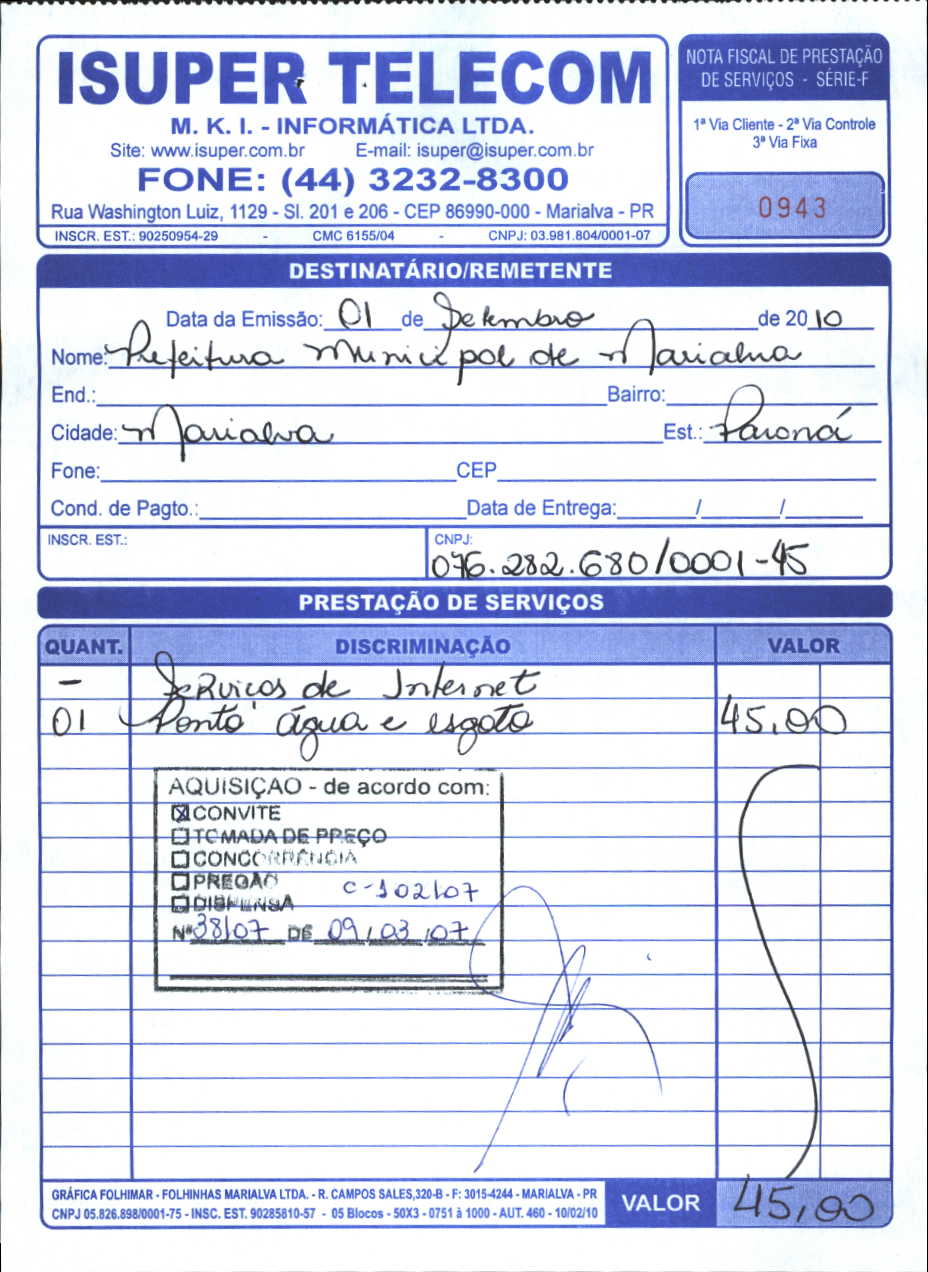 ISUPER TELECOM
M. K. I. - INFORMÁTICA LTDA.
Site: www.isuper.com.br E-mail: isuper@isuper.com.br
FONE: (44) 3232-8300
Rua Washington Luiz, 1129 - Sl. 201 e 206 - CEP 86990-000 - Marialva - PR
INSCR. EST.: 90250954-29 - CMC 6155/04 - CNPJ: 03.981.804/0001-07
NOTA FISCAL DE PRESTAÇÃO
DE SERVIÇOS - SÉRIE-F
1ª Via Cliente - 2ª Via Controle
3ª Via Fixa
0943
DESTINATÁRIO/REMETENTE
Data da Emissão: 01 de Setembro de 2010
Nome: Prefeitura Municipal de Marialva
End.: Bairro:
Cidade: Marialva Est.: Paraná
Fone: CEP
Cond. de Pagto.: Data de Entrega: / /
INSCR. EST.: CNPJ:
076.282.680/0001-45
PRESTAÇÃO DE SERVIÇOS
QUANT. DISCRIMINAÇÃO VALOR
- Serviços de Internet
01 Ponto água e esgoto 45,00
AQUISIÇAO - de acordo com:
CONVITE
TOMADA DE PREÇO
CONCORRÊNCIA
PREGÃO C-102/07
DISPENSA
Nº 38/07 DE 09/03/07
GRÁFICA FOLHIMAR - FOLHINHAS MARIALVA LTDA. - R. CAMPOS SALES,320-B - F: 3015-4244 - MARIALVA - PR
CNPJ 05.826.898/0001-75 - INSC. EST. 90285810-57 - 05 Blocos - 50X3 - 0751 à 1000 - AUT. 460 - 10/02/10
VALOR 45,00